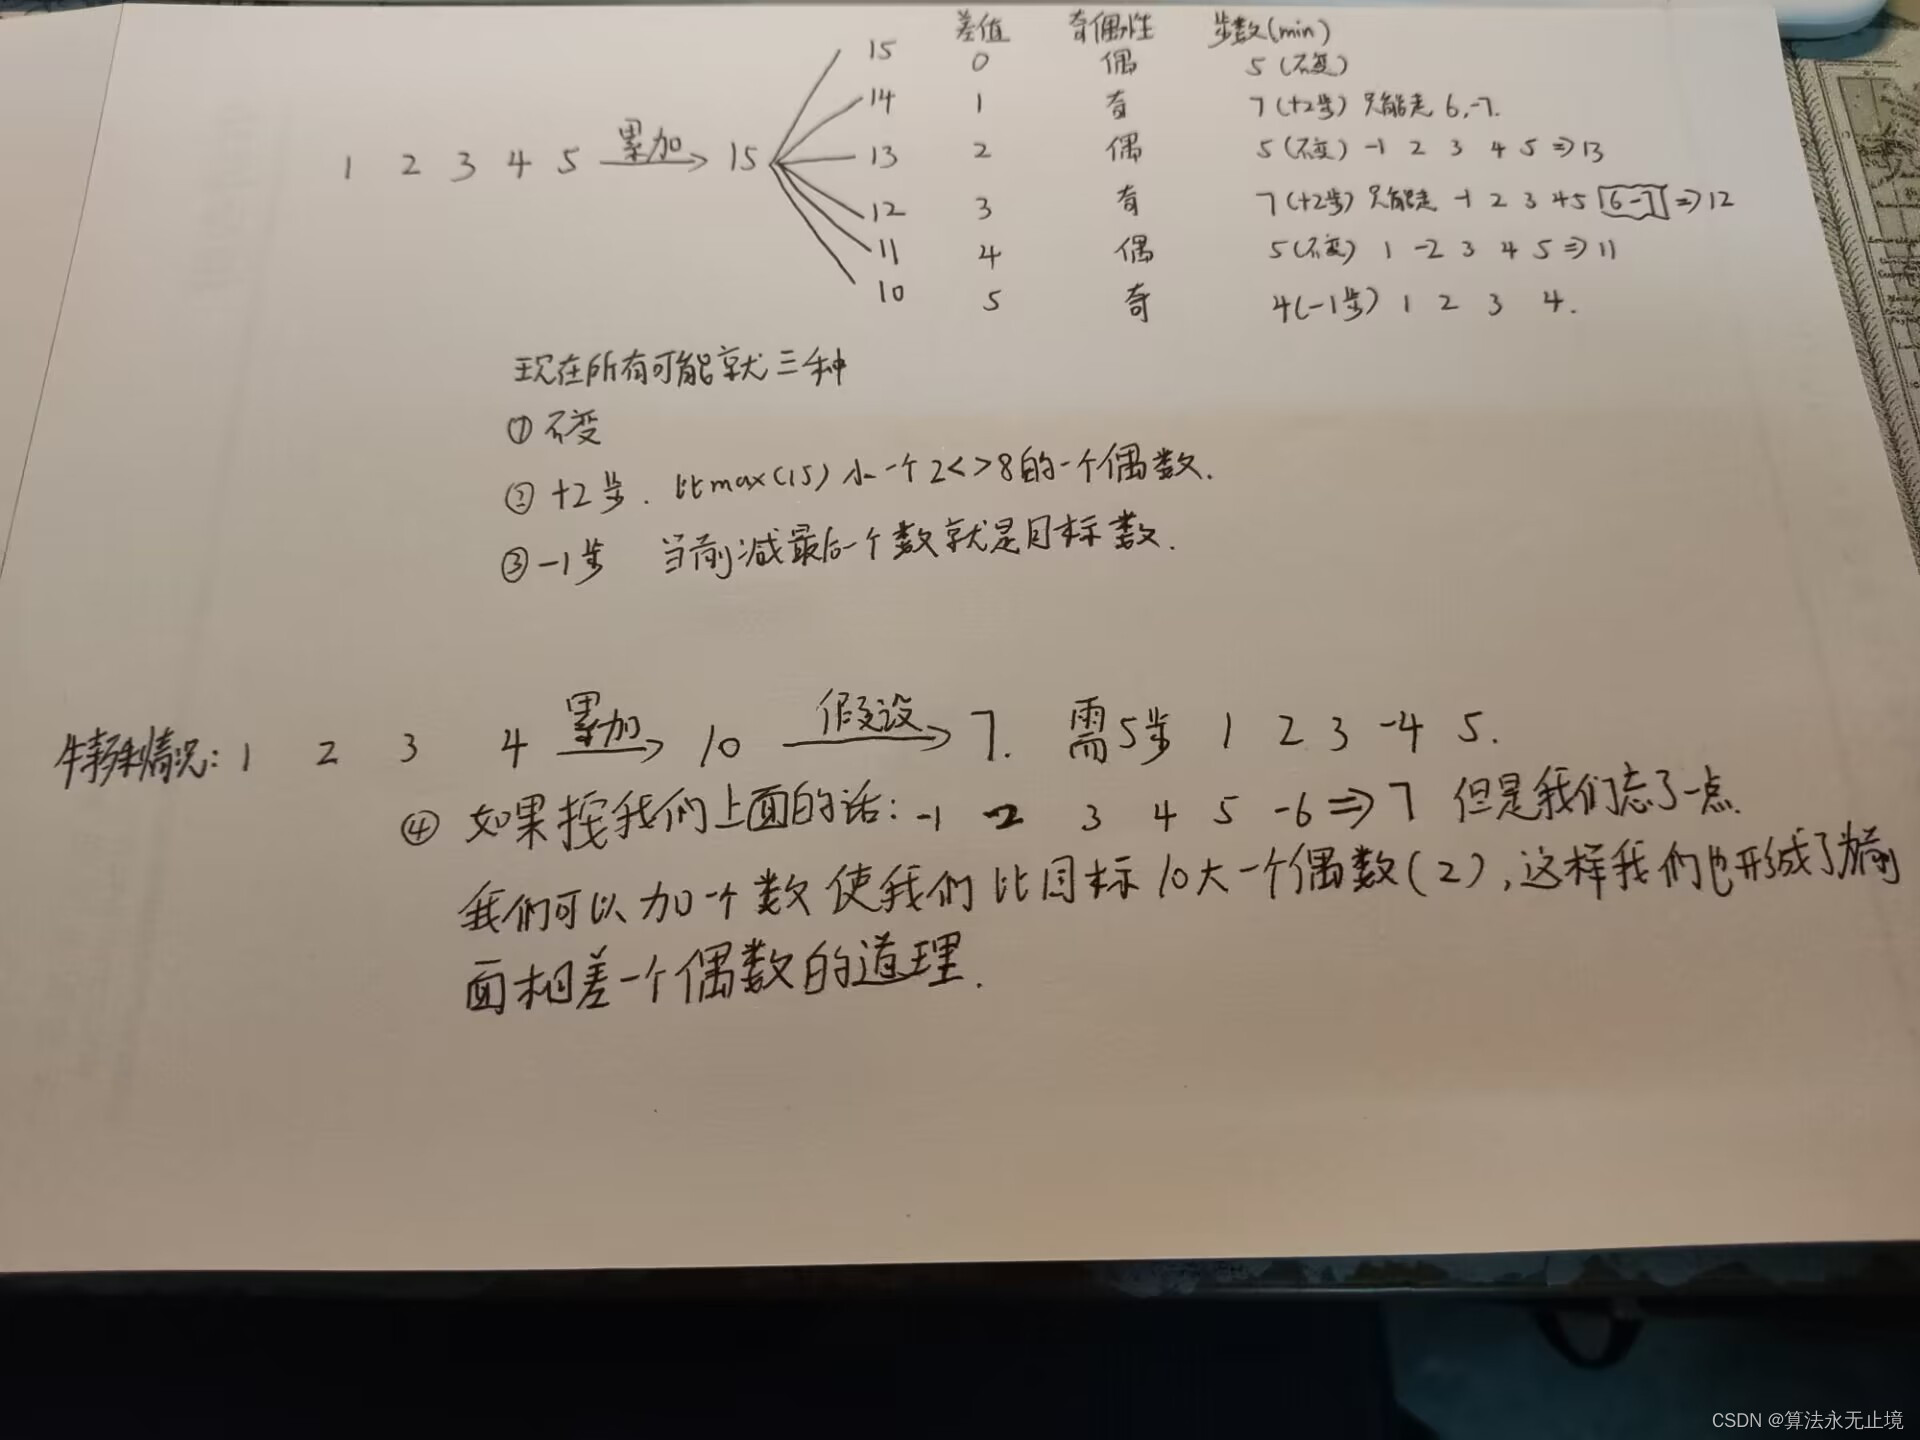 差值 奇偶性 步数(min)
15 0 偶 5 (不变)
14 1 奇 7 (+2步) 只能走 6, -7.
1 2 3 4 5 累加 15 13 2 偶 5 (不变) -1 2 3 4 5 ⇒ 13
12 3 奇 7 (+2步) 只能走 -1 2 3 4 5 6 -7 ⇒ 12
11 4 偶 5 (不变) 1 -2 3 4 5 ⇒ 11
10 5 奇 4 (-1步) 1 2 3 4.
现在所有可能就三种
① 不变
② +2步. 比max(15) 小一个2<>8的一个偶数.
③ -1步 当前减最后一个数就是目标数.
特殊情况: 1 2 3 4 累加 10 假设 7. 需5步 1 2 3 -4 5.
④ 如果按我们上面的话: -1 -2 3 4 5 -6 ⇒ 7 但是我们忘了一点.
我们可以加一个数使我们比目标10大一个偶数(2), 这样我们也形成了前
面相差一个偶数的道理.
CSDN @算法永无止境